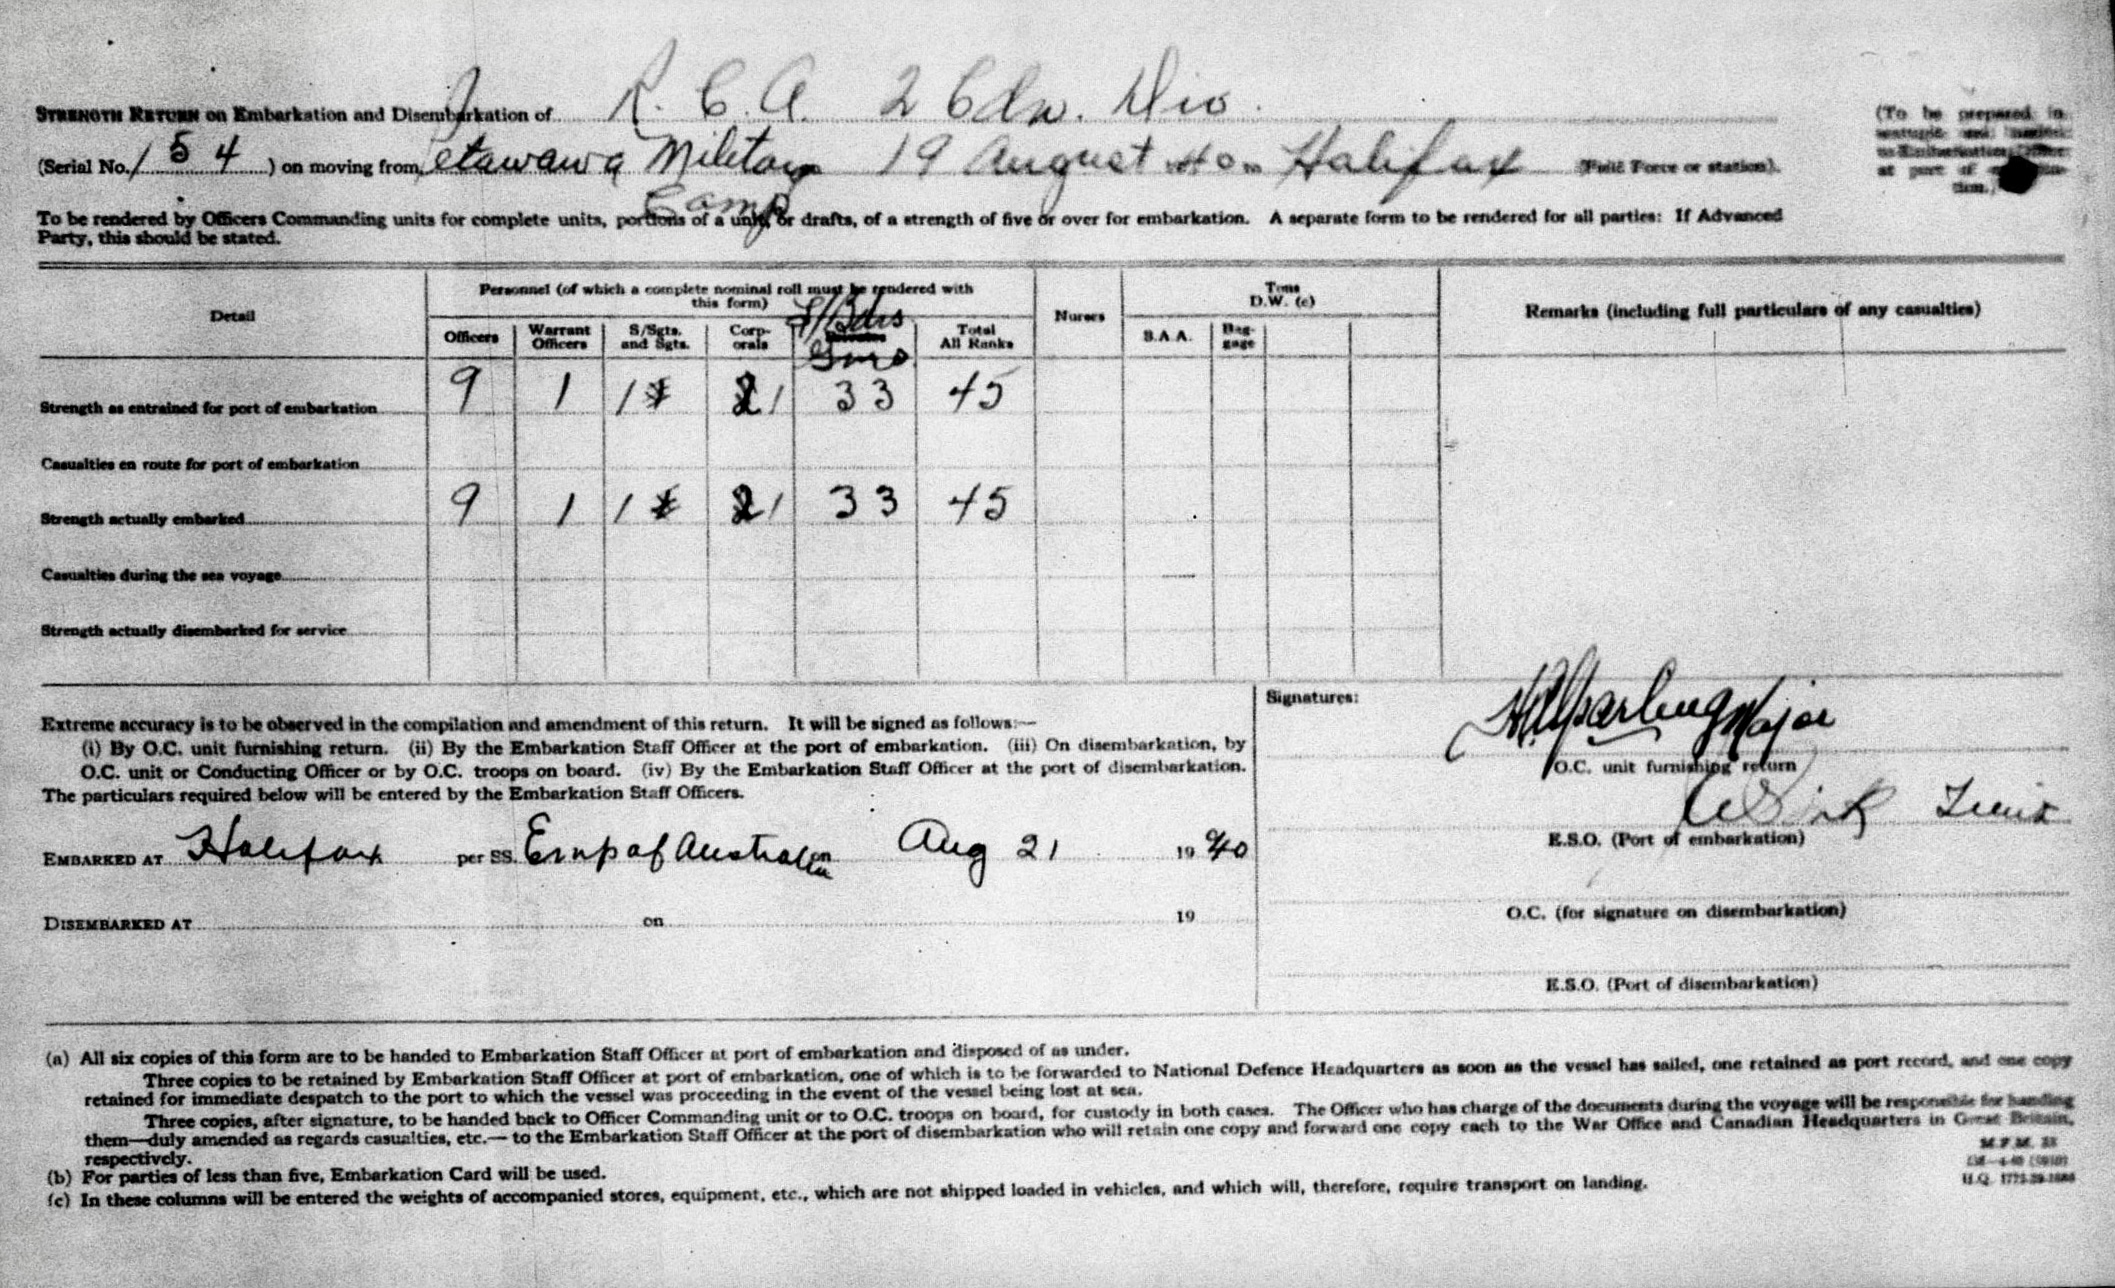 STRENGTH RETURN on Embarkation and Disembarkation of R. C. A. 2 Cdn. Div.
(To be prepared in
at port of
(Serial No. 154) on moving from Petawawa Military 19 August 40 to Halifax (Field Force or station).
Camp
To be rendered by Officers Commanding units for complete units, portions of a unit, or drafts, of a strength of five or over for embarkation. A separate form to be rendered for all parties: If Advanced
Party, this should be stated.
Detail
Personnel (of which a complete nominal roll must be rendered with
this form)
Nurses
Tons
D.W. (c)
Remarks (including full particulars of any casualties)
Officers Warrant Officers S/Sgts. and Sgts. Corporals L/Bdrs Gnrs Total All Ranks S.A.A. Baggage
Strength as entrained for port of embarkation 9 1 1 1 33 45
Casualties en route for port of embarkation
Strength actually embarked 9 1 1 1 33 45
Casualties during the sea voyage —
Strength actually disembarked for service
Signatures:
Extreme accuracy is to be observed in the compilation and amendment of this return. It will be signed as follows:—
(i) By O.C. unit furnishing return. (ii) By the Embarkation Staff Officer at the port of embarkation. (iii) On disembarkation, by
O.C. unit or Conducting Officer or by O.C. troops on board. (iv) By the Embarkation Staff Officer at the port of disembarkation.
The particulars required below will be entered by the Embarkation Staff Officers.
EMBARKED AT Halifax per SS. Emp of Australia Aug 21 1940
DISEMBARKED AT on 19
Sparling Major
O.C. unit furnishing return
E.S.O. (Port of embarkation)
O.C. (for signature on disembarkation)
E.S.O. (Port of disembarkation)
(a) All six copies of this form are to be handed to Embarkation Staff Officer at port of embarkation and disposed of as under.
Three copies to be retained by Embarkation Staff Officer at port of embarkation, one of which is to be forwarded to National Defence Headquarters as soon as the vessel has sailed, one retained as port record, and one copy
retained for immediate despatch to the port to which the vessel was proceeding in the event of the vessel being lost at sea.
Three copies, after signature, to be handed back to Officer Commanding unit or to O.C. troops on board, for custody in both cases. The Officer who has charge of the documents during the voyage will be responsible for handing
them—duly amended as regards casualties, etc.— to the Embarkation Staff Officer at the port of disembarkation who will retain one copy and forward one copy each to the War Office and Canadian Headquarters in Great Britain,
respectively.
(b) For parties of less than five, Embarkation Card will be used.
(c) In these columns will be entered the weights of accompanied stores, equipment, etc., which are not shipped loaded in vehicles, and which will, therefore, require transport on landing.